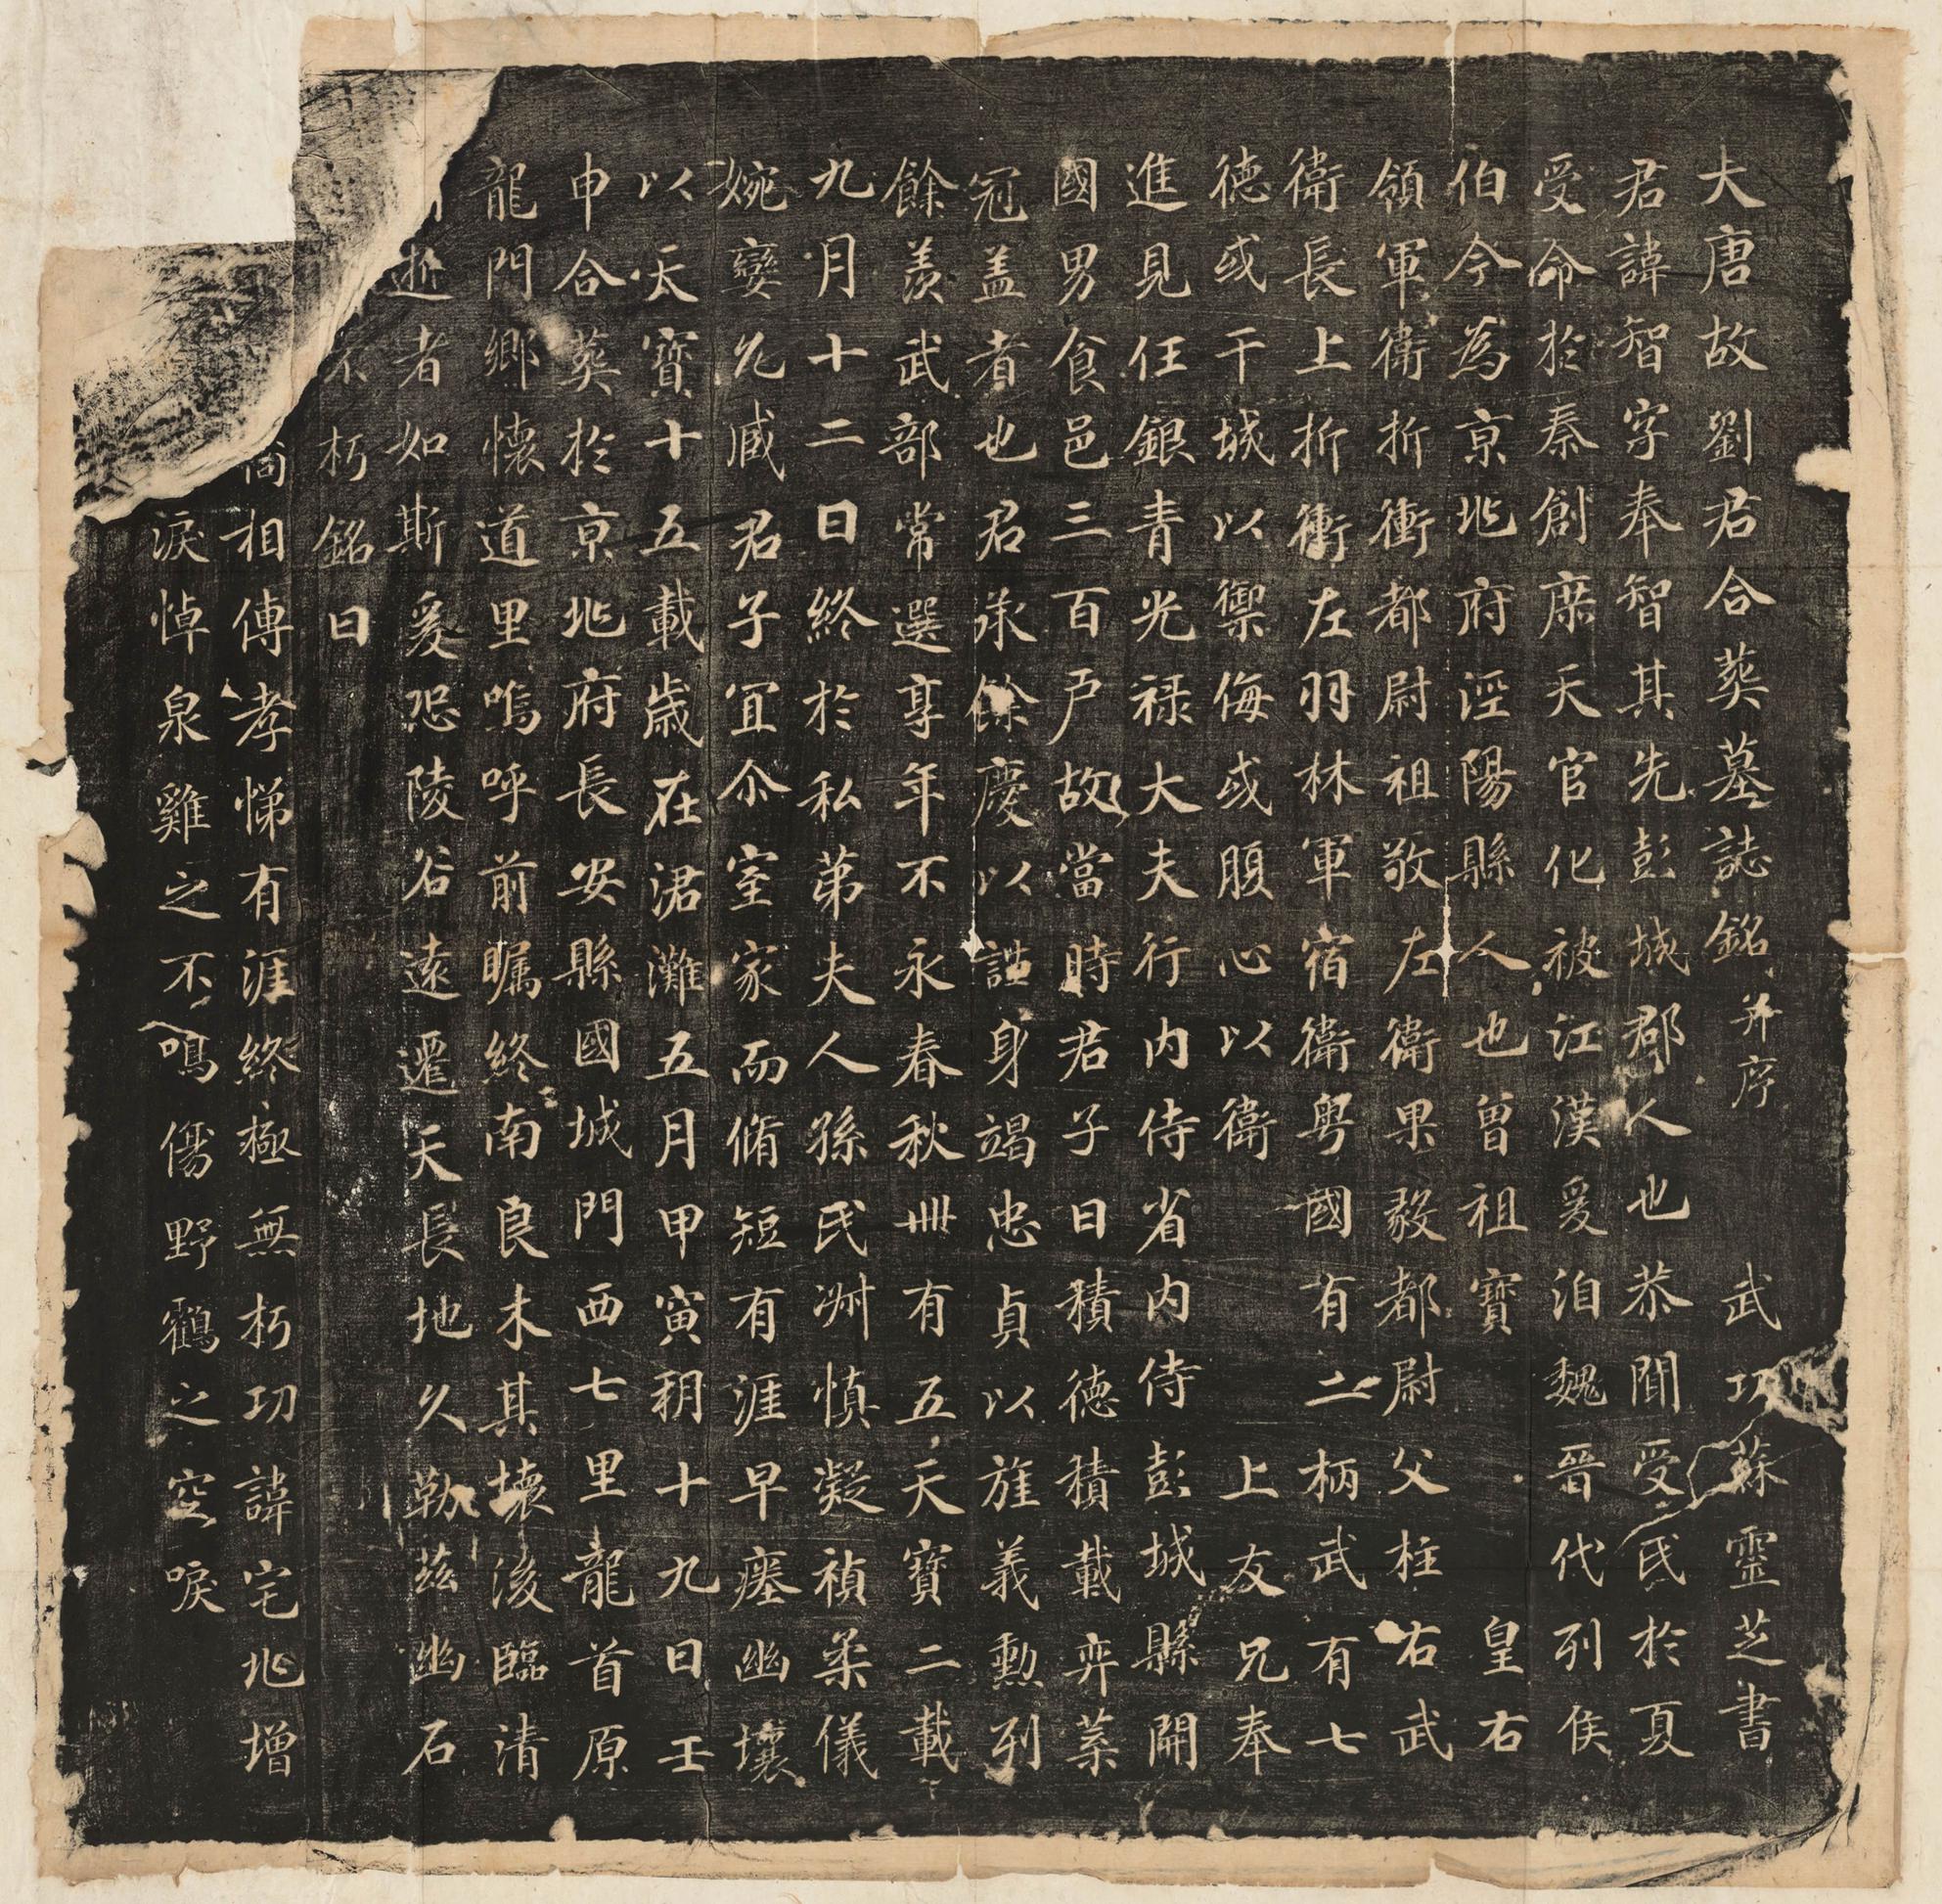 大唐故劉君合葬墓誌銘并序 武功蘇靈芝書
君諱智字奉智其先彭城郡人也恭聞受氏於夏
受命於秦創席天官化被江漢爰洎魏晉代列侯
伯今為京兆府涇陽縣人也曾祖寶 皇右
領軍衛折衝都尉祖敬左衛果毅都尉父柱右武
衛長上折衝左羽林軍宿衛粤國有二柄武有七
德或干城以禦侮或腹心以衛 上友兄奉
進見任銀青光祿大夫行內侍省內侍彭城縣開
國男食邑三百戶故當時君子曰積德積載弈葉
冠盖者也君承餘慶以謹身竭忠貞以旌義勳列
餘羨武部常選享年不永春秋卌有五天寶二載
九月十二日終於私第夫人孫氏淑慎凝禎柔儀
婉孌允臧君子宜尒室家而脩短有涯早瘞幽壤
以天寶十五載歲在涒灘五月甲寅朔十九日壬
申合葬於京兆府長安縣國城門西七里龍首原
龍門鄉懷道里嗚呼前矚終南良木其壞後臨清
逝者如斯爰恐陵谷遠遷天長地久勒茲幽石
不朽銘曰
相傳孝悌有涯終極無朽功諱宅兆增
淚悼泉雞之不鳴傷野鶴之空唳